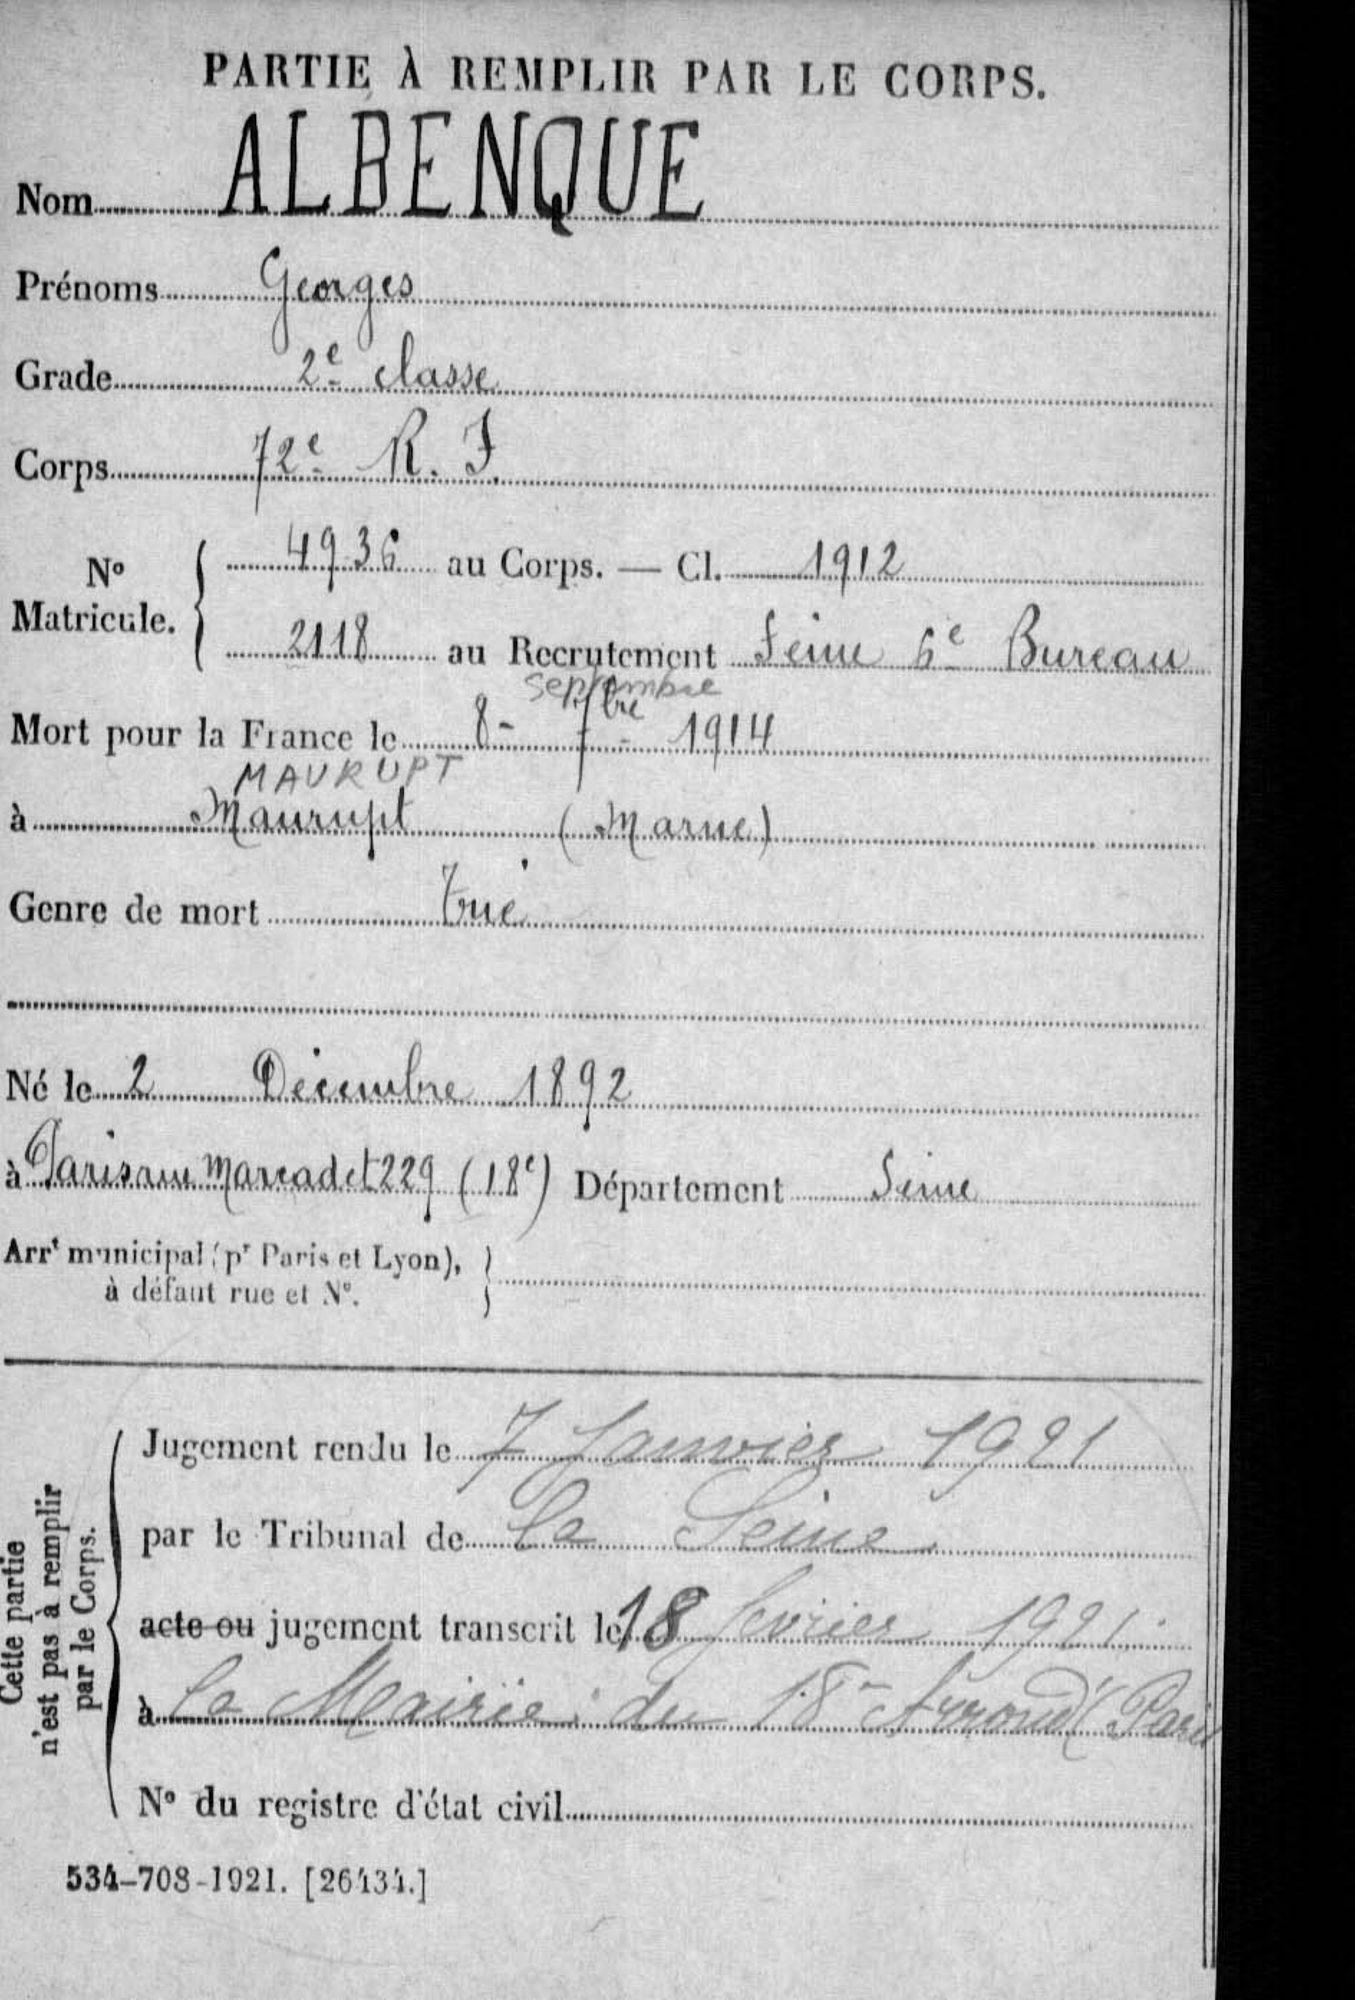 PARTIE À REMPLIR PAR LE CORPS.
Nom ALBENQUE
Prénoms Georges
Grade 2e classe
Corps 72e R. I.
No Matricule. { 4936 au Corps. — Cl. 1912
2118 au Recrutement Seine 6e Bureau
septembre
Mort pour la France le 8 - 7bre - 1914
MAURUPT
à Maurupt (Marne)
Genre de mort Tué
Né le 2 Décembre 1892
à Paris rue Marcadet 229 (18e) Département Seine
Arrt municipal (pr Paris et Lyon),
à défaut rue et No.
Cette partie
n'est pas à remplir
par le Corps.
Jugement rendu le 7 Janvier 1921
par le Tribunal de la Seine
acte ou jugement transcrit le 18 fevrier 1921.
à la Mairie du 18e Arrondt (Paris
No du registre d'état civil
534-708-1921. [26434.]